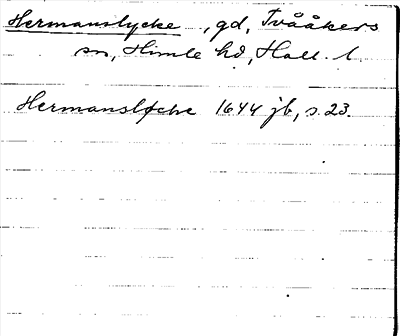 Hermanslycke, gd, Tvååkers
sn, Himle hd, Hall. l.
Hermansløcke 1644 jb, s. 23.